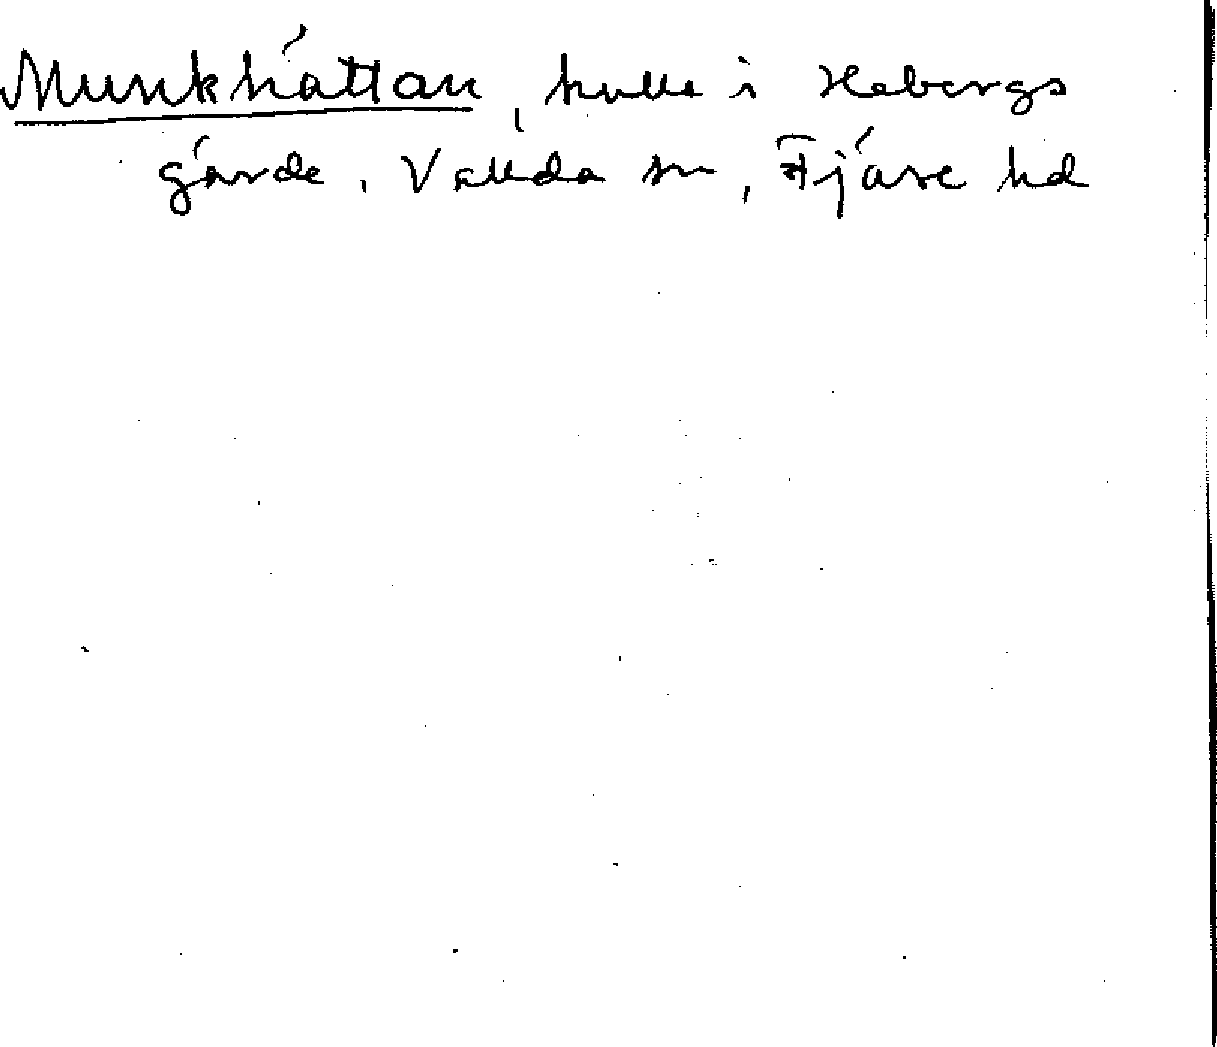 Munkhättan, kulle i Hebergs
gärde, Vallda sn, Fjäre hd